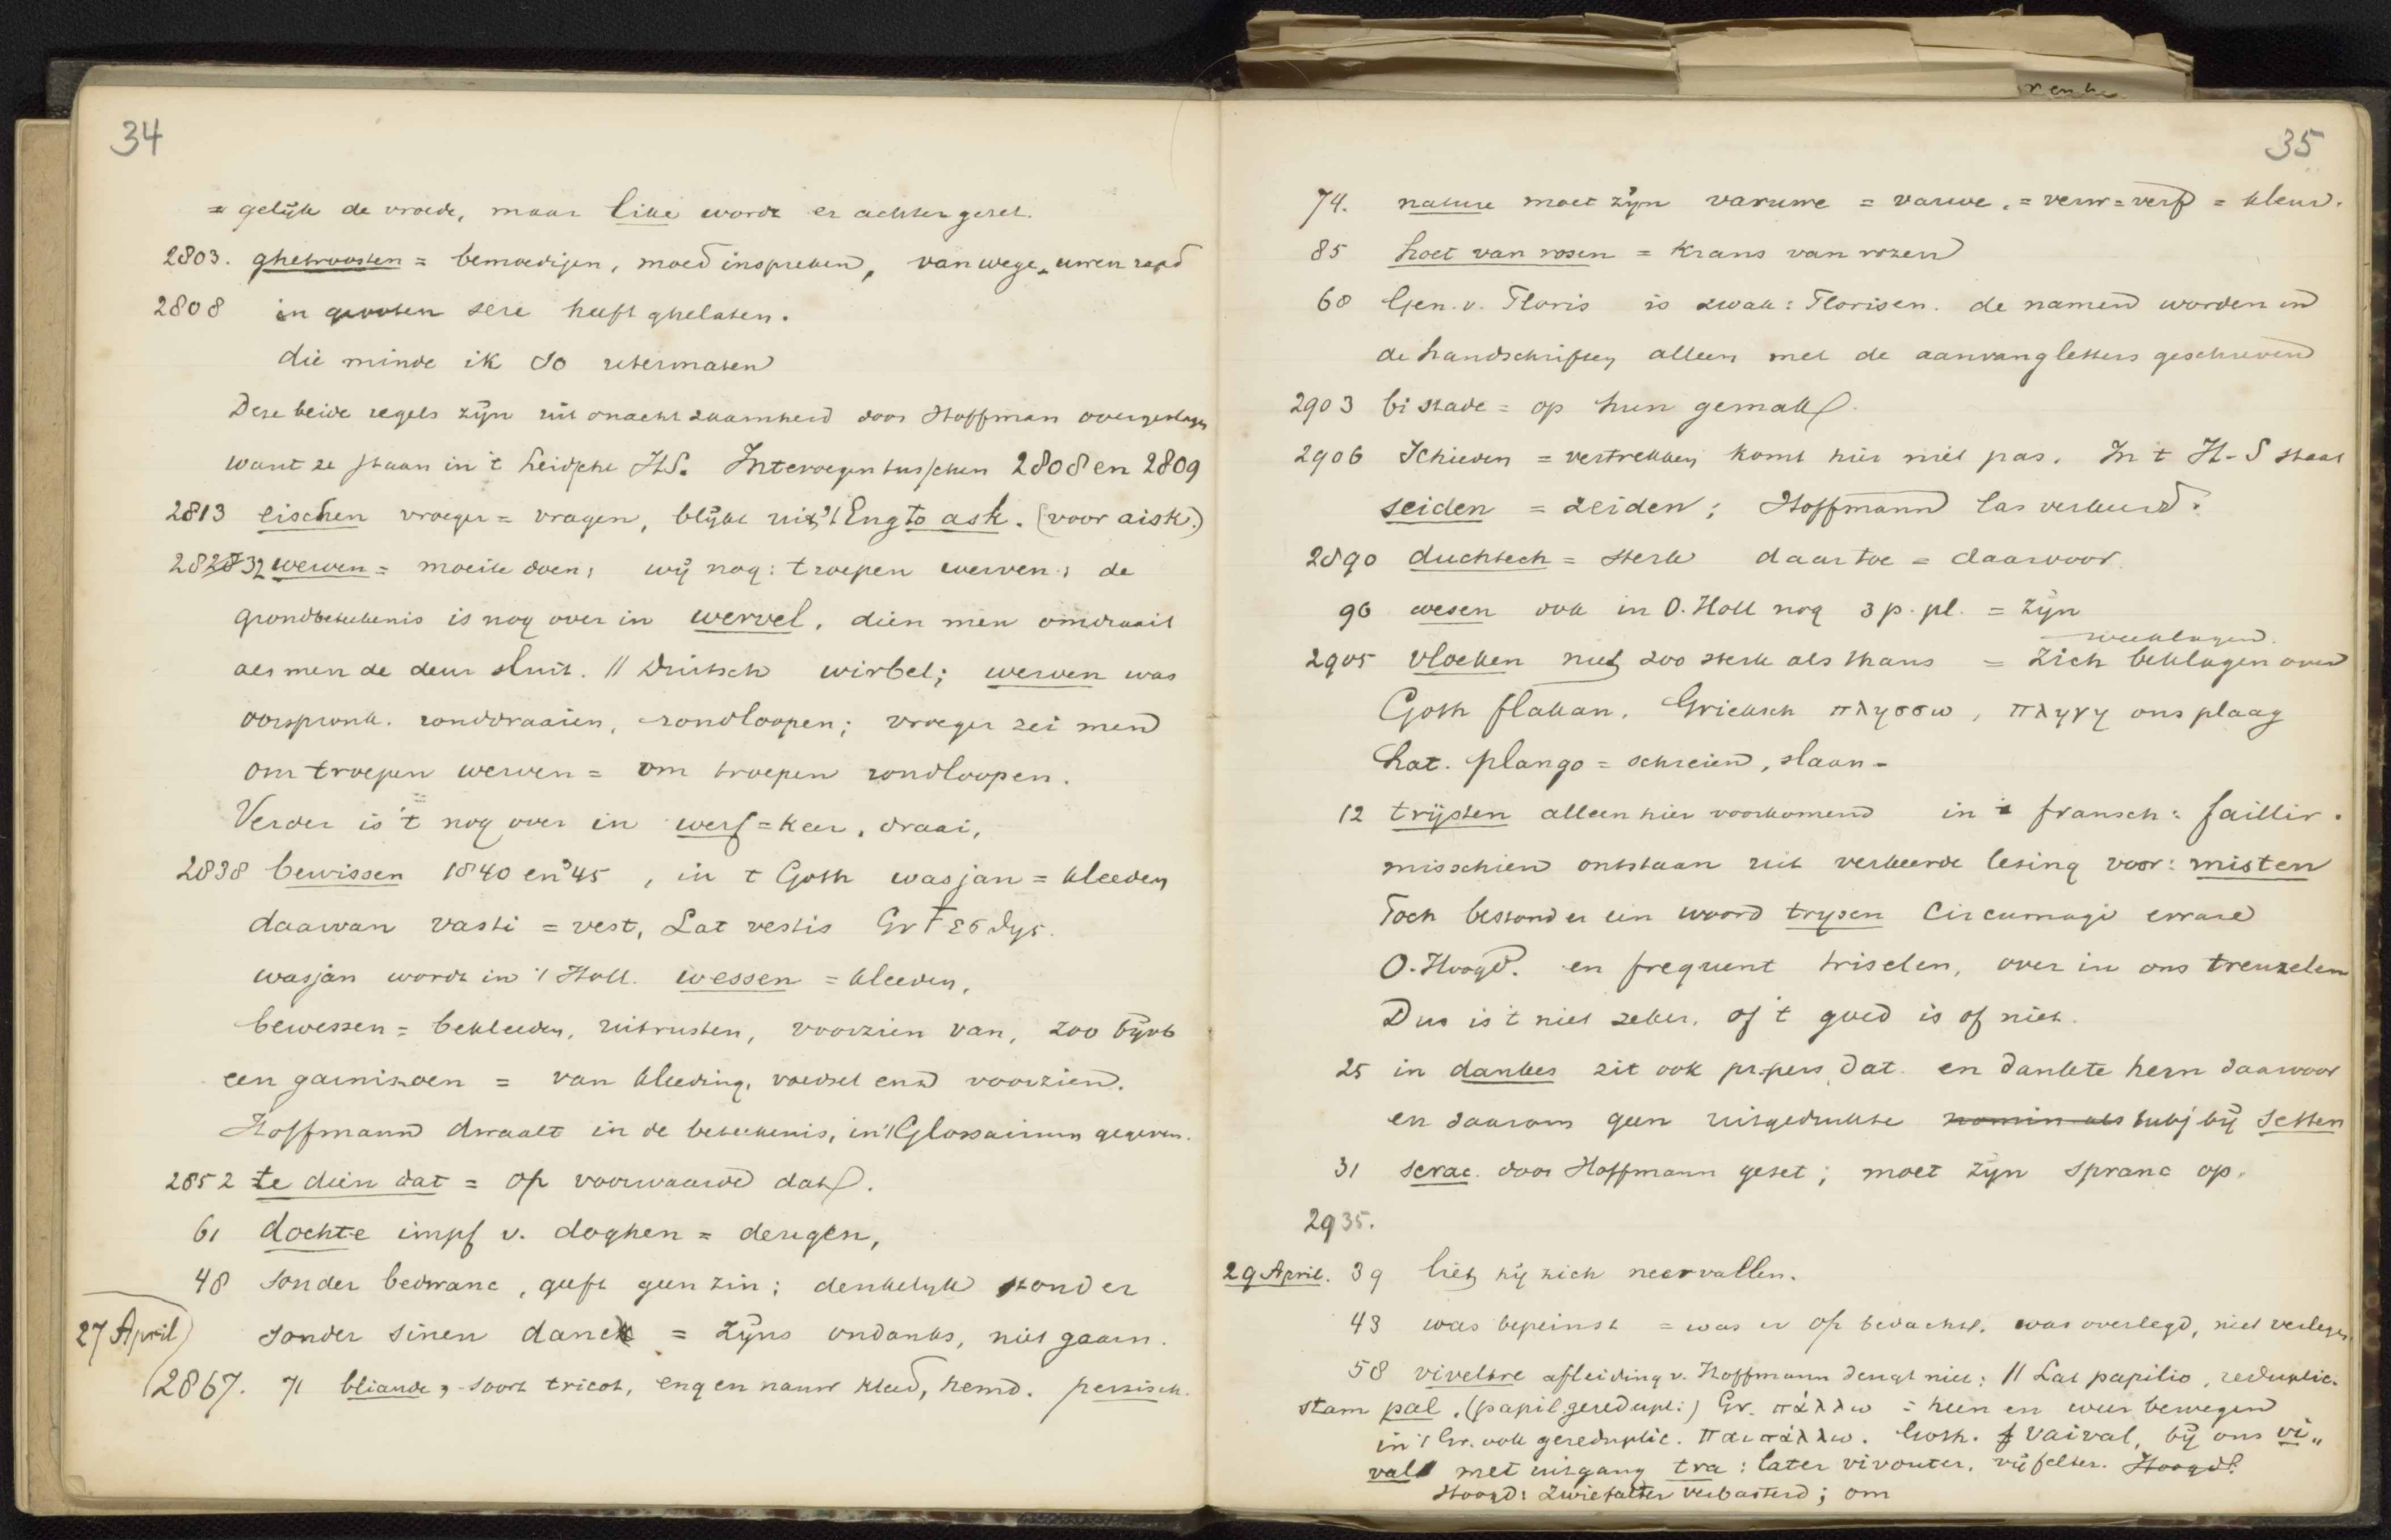 34
= gelijk de vroede, maar like wordt er achter gezet.
2803. ghetroosten = bemoedigen, moed inspreken, van wege uwen raad
2808 in grooten sere heeft ghelaten.
die minde ik so utermaten
Deze beide regels zijn uit onachtzaamheid door Hoffman overgeslagen
want ze staan in 't Leidsche HS. In te voegen tusschen 2808 en 2809
2813 eischen vroeger = vragen, blijkt uit 't Eng to ask. (voor aisk.)
2832 werven = moeite doen; wij nog: troepen werven; de
grondbeteekenis is nog over in wervel, dien men omdraait
als men de deur sluit. // Duitsch wirbel; werven was
oorspronk. ronddraaien, rondloopen; vroeger zei men
om troepen werven = om troepen rondloopen.
Verder is 't nog over in werf = keer, draai,
2838 bewissen 1840 en 45, in t Goth wasjan = kleeden
daarvan vasti = vest, Lat vestis Gr Ϝεσθης.
wasjan wordt in 't Holl. wessen = kleeden,
bewessen = bekleeden, uitrusten, voorzien van, zoo bijvb
een garnizoen = van kleeding, voedsel enz voorzien.
Hoffmann dwaalt in de beteekenis, in 't Glossarium gegeven.
2852 te dien dat = op voorwaarde dat.
61 dochte impf v. doghen = deugen,
48 sonder bedwanc, geeft geen zin; denkelijk stond er
27 April sonder sinen danck = zijns ondanks, niet gaarn.
2867. 71 bliaude, soort tricot, eng en nauw kleed, hemd. perzisch.
35
74. nature moet zijn varuwe = varwe. = verw = verf = kleur.
85 hoet van rosen = krans van rozen
60 Gen. v. Floris is zwak: Florisen. de namen worden in
de handschriften alleen met de aanvangletters geschreven
2903 bi stade = op hun gemak.
2906 Schieden = vertrekken komt hier niet pas. In t H-S staat
seiden = zeiden; Hoffmann las verkeerd.
2890 duchtech = sterk daartoe = daarvoor.
96 wesen ook in O. Holl nog 3 p. pl. = zijn
weeklagen.
2905 vloeken niet zoo sterk als thans = zich beklagen over
Goth flakan. Grieksch πλησσω, πληγη ons plaag
Lat. plango = schreien, slaan -
12 trijsten alleen hier voorkomend in fransch: faillir.
misschien ontstaan uit verkeerde lezing voor: misten
Toch bestond er een woord trysen circumagi errare
O. Hoogd. en frequent triselen, over in ons treuzelen
Dus is 't niet zeker, of 't goed is of niet.
25 in dankes zit ook pr. pers dat. en dankte hem daarvoor
en daarom geen uitgedrukte nomin als subj bij setten
31 scrac. door Hoffmann gezet; moet zijn spranc op.
2935.
29 April. 39 liet hij zich neervallen.
43 was bepeinst = was er op bedacht. was overlegd, niet verlegen.
58 viveltre afleiding v. Hoffmann deugt niet; // Lat papilio, reduplic.
stam pal. (papil geredupl:) Gr. πάλλω = heen en weer bewegen
in 't Gr. ook gereduplic. παιπάλλω. Goth. vaival, bij ons vi„
val met uitgang tra: later vivouter, vijfelter. Hoogd:
Hoogd: Zwiefalter verbasterd; om